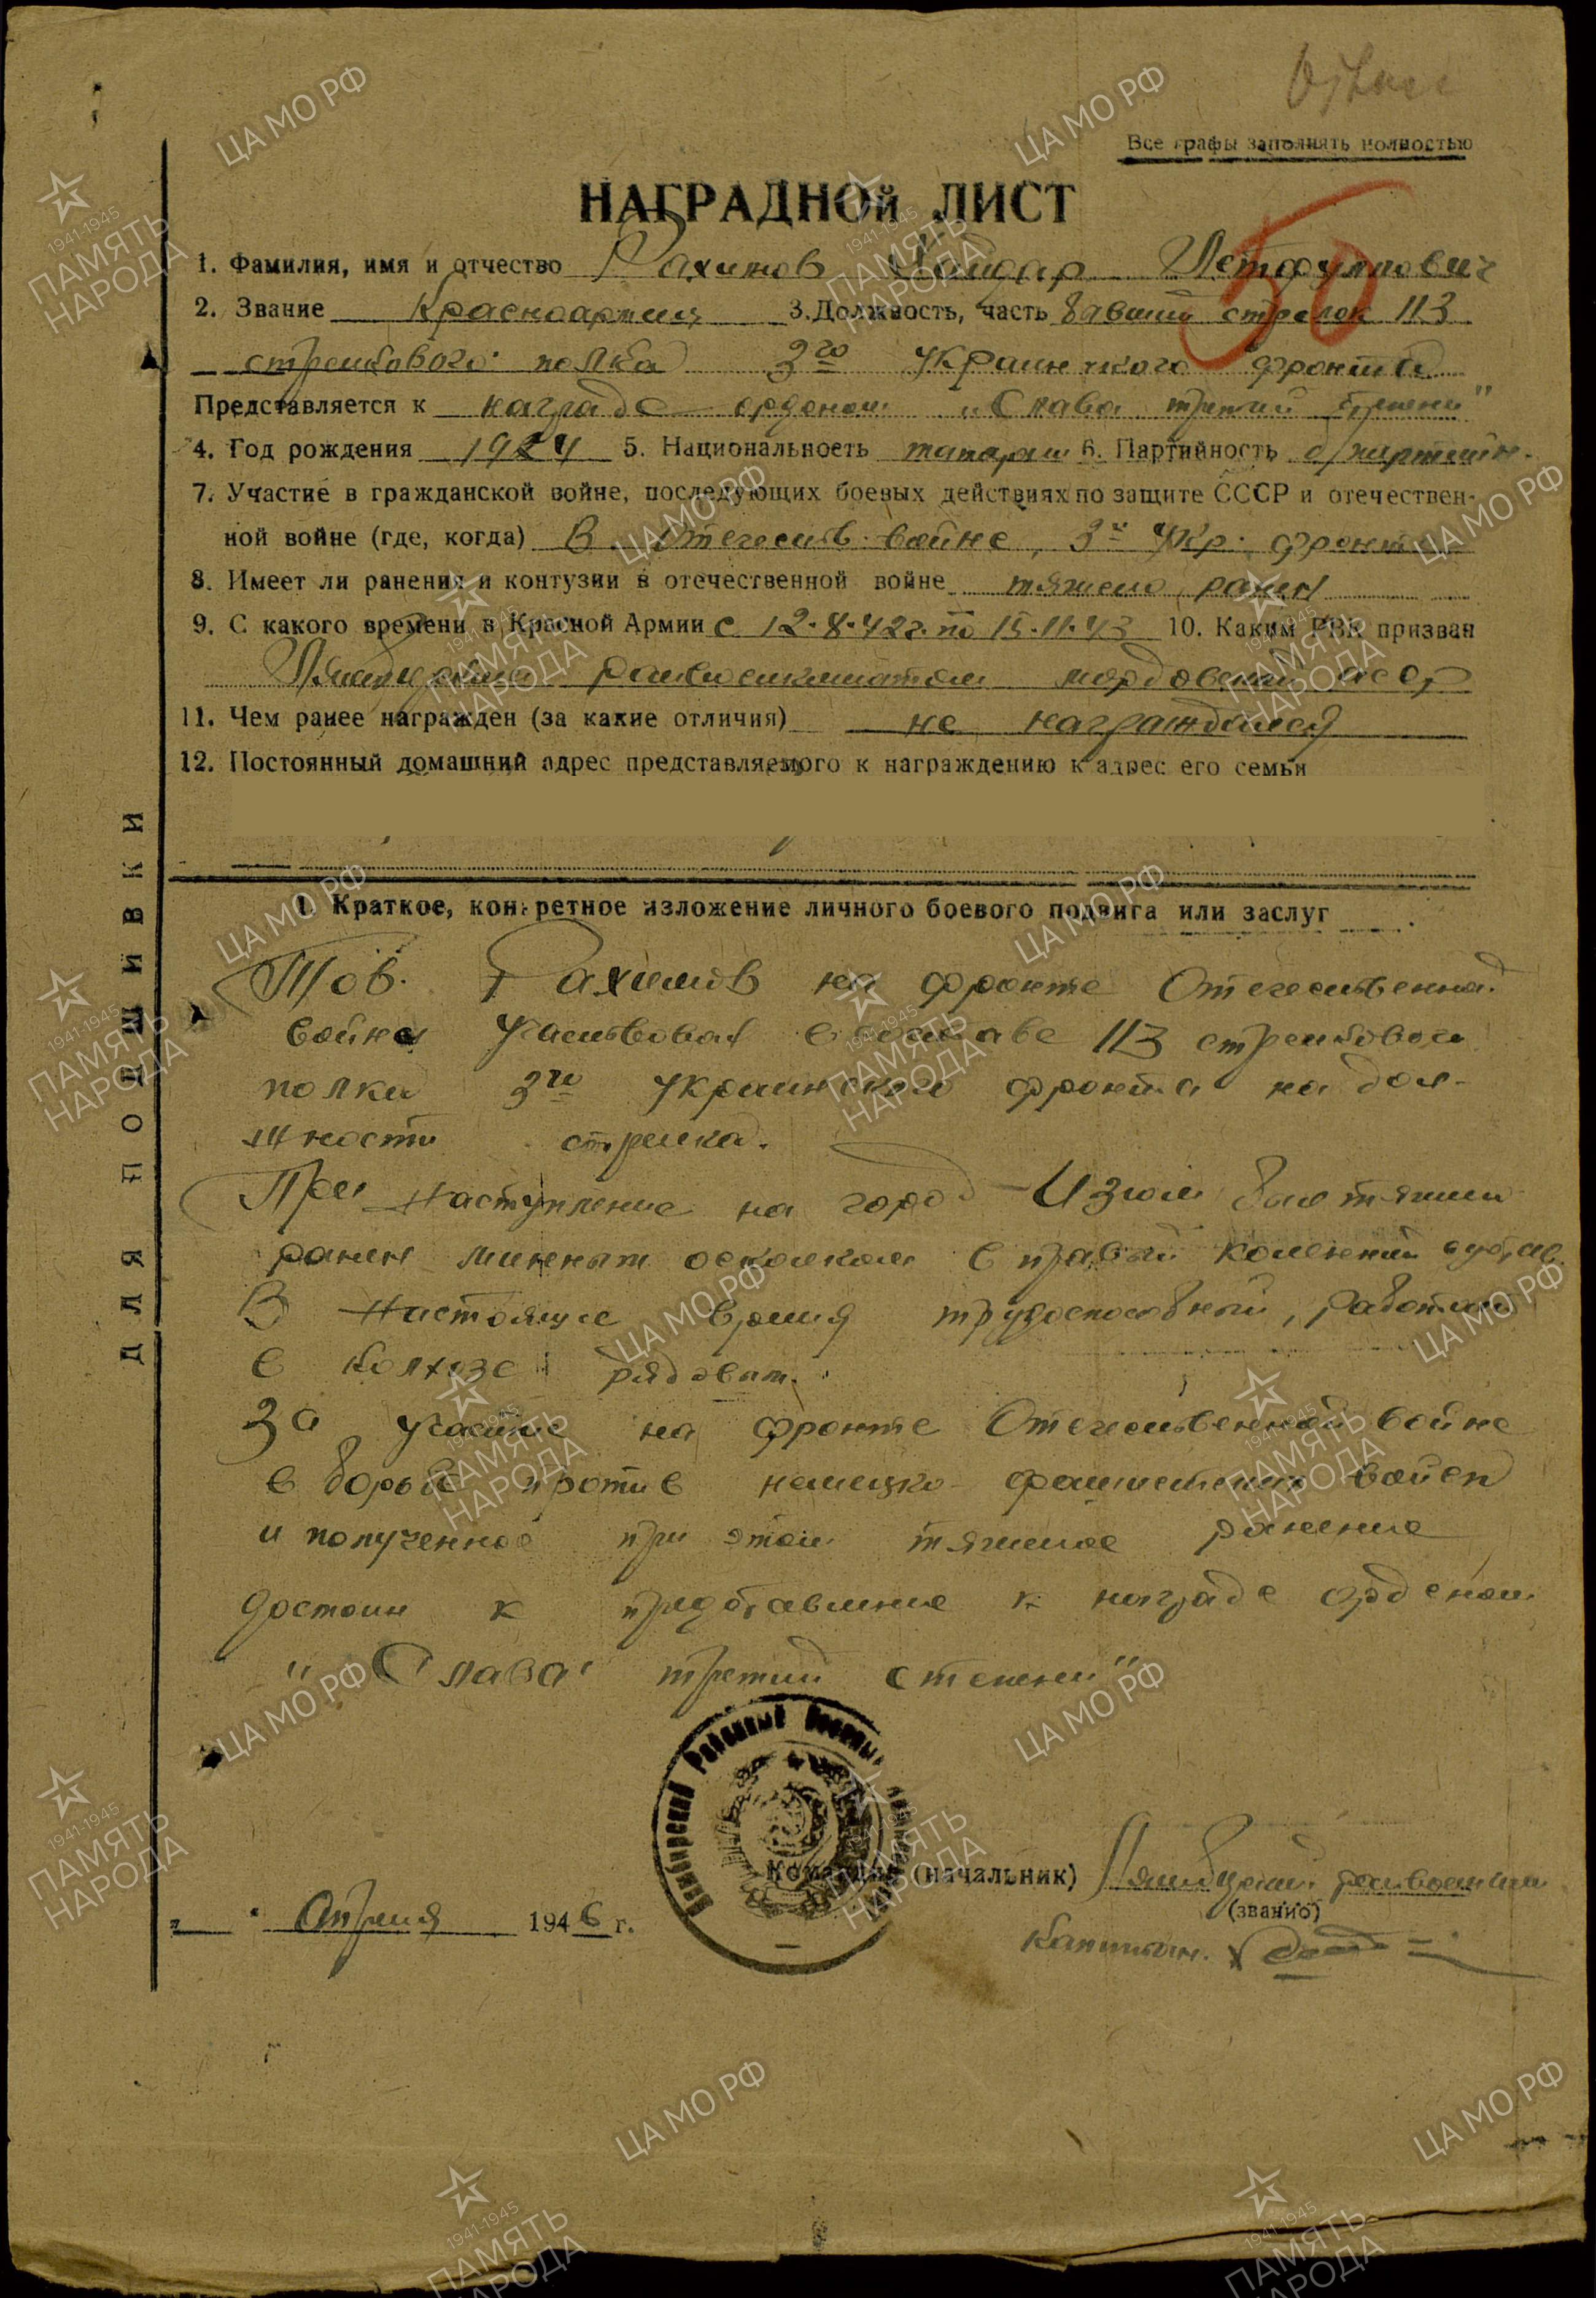 Все графы заполнять полностью
НАГРАДНОй ЛИСТ
50
1. Фамилия, имя и отчество Рахимов Хайдар
2. Звание Красноармеец 3. Должность, часть бавший стрелок 113
стрелкового полка 3го Украинского фронта
Представляется к награде орденом "Слава третий степени"
4. Год рождения 1924 5. Национальность татарин 6. Партийность б/партийн.
7. Участие в гражданской войне, последующих боевых действиях по защите СССР и отечествен-
ной войне (где, когда) В Отечеств. войне, 3й Укр. фронт
8. Имеет ли ранения и контузии в отечественной войне тяжело ранен
9. С какого времени в Красной Армии с 12.8.42г. по 15.11.43 10. Каким РВК призван
Лямбирским райвоенкоматом мордовской асср
11. Чем ранее награжден (за какие отличия) не награждался
12. Постоянный домашний адрес представляемого к награждению к адрес его семьи
1. Краткое, конкретное изложение личного боевого подвига или заслуг
Тов. Рахимов на фронте Отечественной
войны участвовал в составе 113 стрелкового
полка 3го Украинского фронта на дол-
жности стрелка.
При наступление на город Изюм был тяжело
ранен минным осколком в правый коленный сустав.
В настоящее время трудоспособный, работает
в колхозе рядовым.
За участие на фронте Отечественной войне
в борьбе против немецко-фашистских войск
и полученное при этом тяжелое ранение
достоин к представление к награде орденом
"Слава третий степени"
Командир (начальник) Лямбирский райвоенком
(звание)
капитан
" " Апреля 1946 г.
ДЛЯ ПОДШИВКИ
ЦА МО РФ
1941-1945
ПАМЯТЬ
НАРОДА